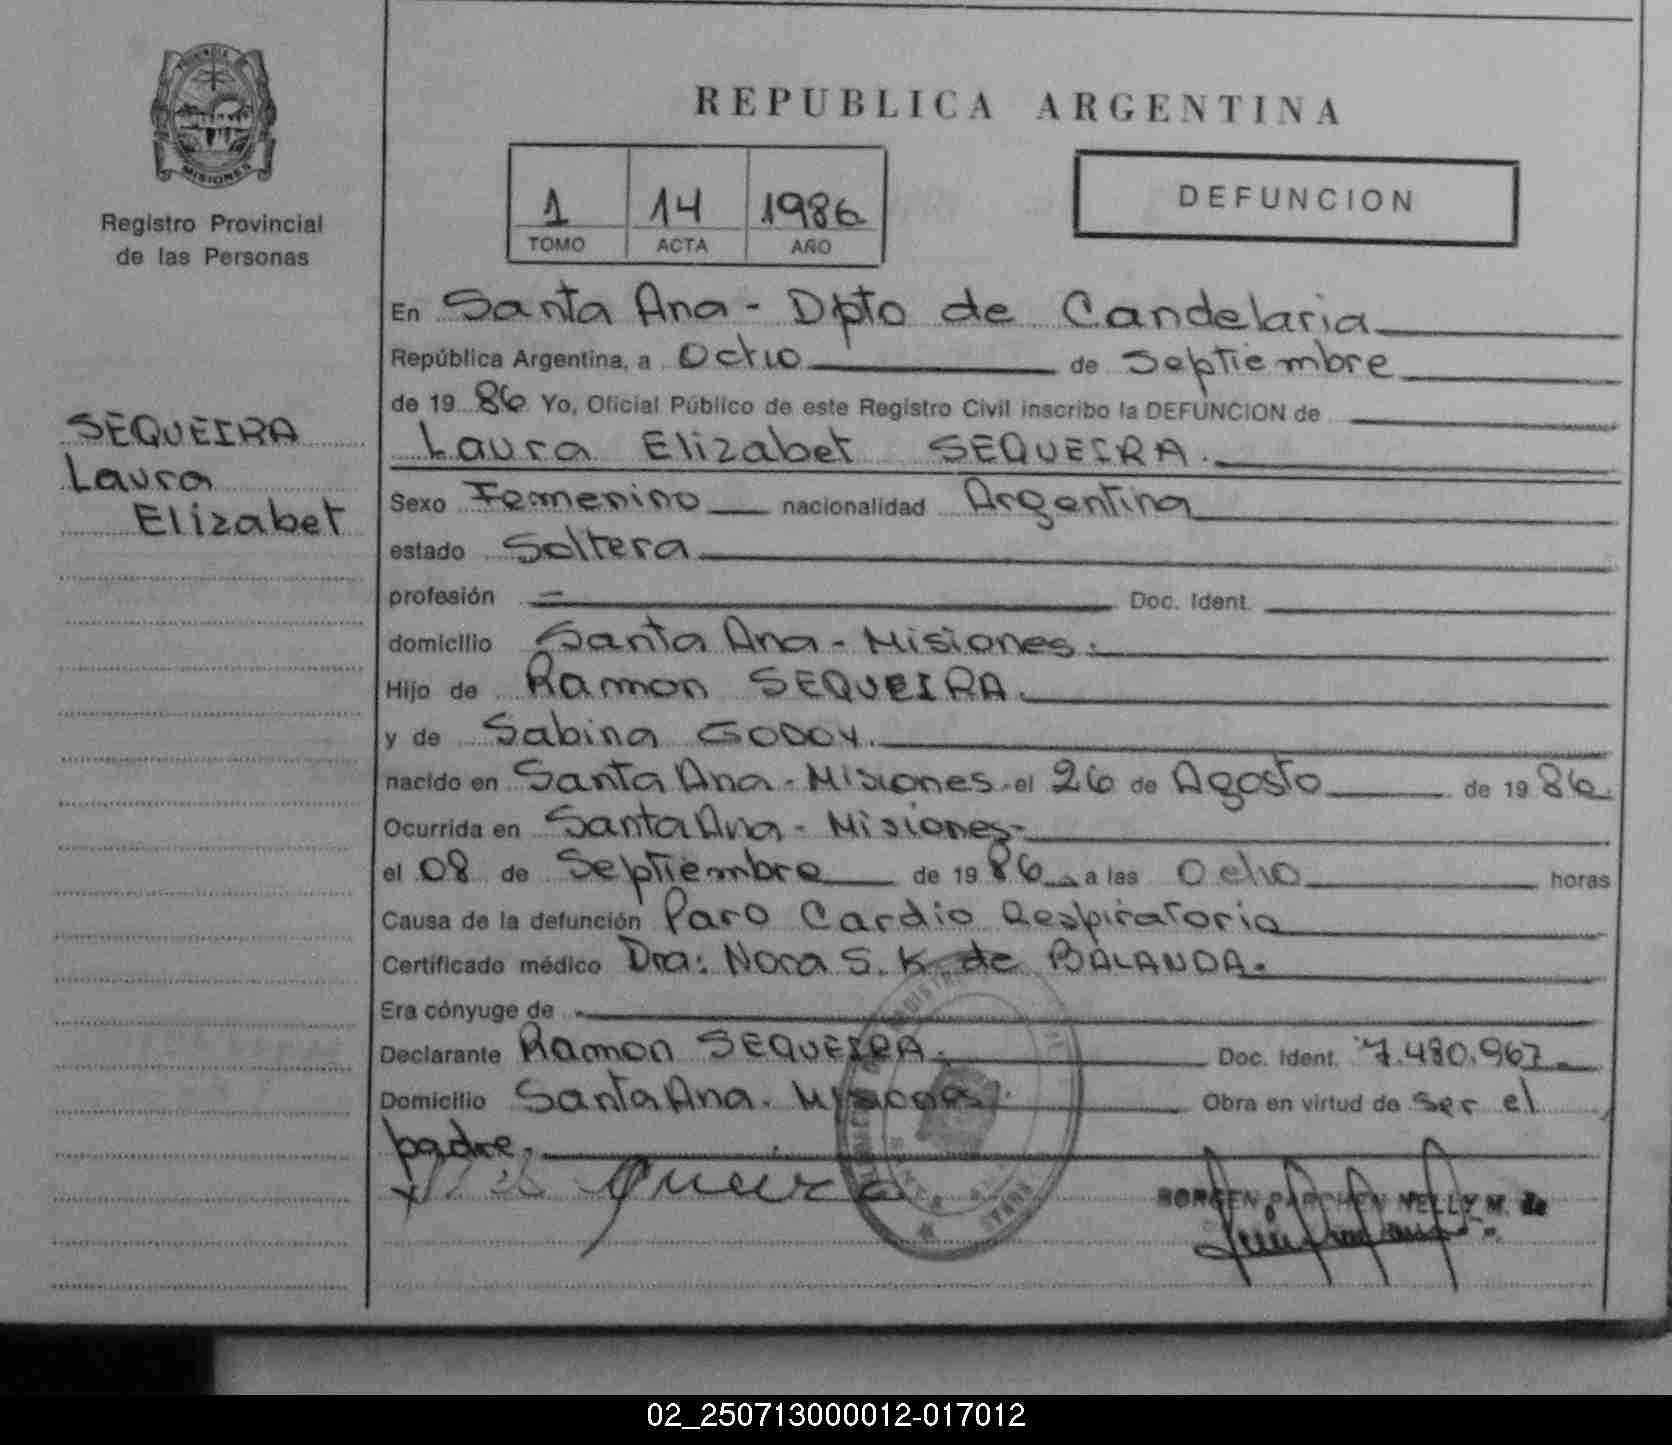 PROVINCIA DE
MISIONES
Registro Provincial
de las Personas
SEQUEIRA
Laura
Elizabet
REPUBLICA ARGENTINA
1 14 1986
TOMO ACTA AÑO
DEFUNCION
En Santa Ana - Dpto de Candelaria
República Argentina, a Ocho de Septiembre
de 1986 Yo, Oficial Público de este Registro Civil inscribo la DEFUNCION de
Laura Elizabet SEQUEIRA.
Sexo Femenino nacionalidad Argentina
estado Soltera
profesión = Doc. Ident.
domicilio Santa Ana - Misiones.
Hijo de Ramon SEQUEIRA.
y de Sabina GODOY.
nacido en Santa Ana - Misiones - el 26 de Agosto de 1986.
Ocurrida en Santa Ana - Misiones -
el 08 de Septiembre de 1986 a las Ocho horas
Causa de la defunción Paro Cardio Respiratorio
Certificado médico Dra: Nora S. K. de BALANDA.
Era cónyuge de
Declarante Ramon SEQUEIRA. Doc. Ident. 7.480.967
Domicilio Santa Ana. Misiones. Obra en virtud de ser el
padre.
NELLY M. de
02_250713000012-017012